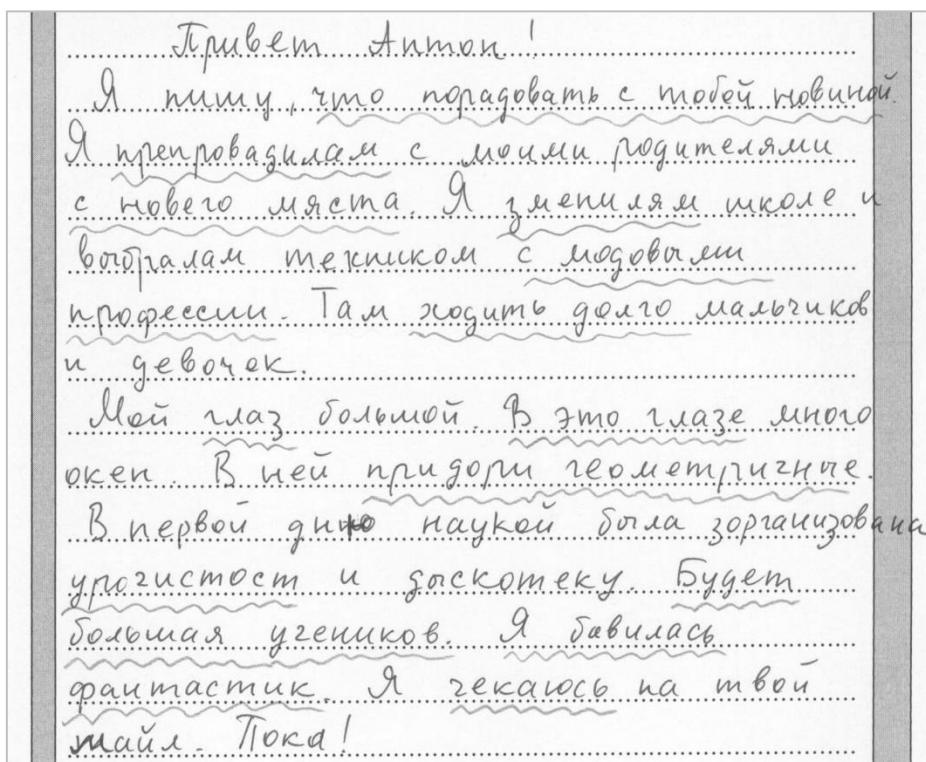 Привет Антон!
Я пишу, что порадовать с тобой новиной.
Я препровадилам с моими родителями
с нового мяста. Я зменилям школе и
выбралам техником с модовыми
профессии. Там ходить долго мальчиков
и девочек.
Мой глаз большой. В это глазе много
окен. В ней придори геометричные.
В первой дню наукой была зорганизована
урочистост и дыскотеку. Будет
большая учеников. Я бавилась
фантастик. Я чекаюсь на твой
майл. Пока!